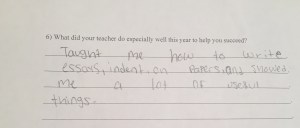 6) What did your teacher do especially well this year to help you succeed?
Taught me how to write
essays, indent on papers, and
me a lot of useful
things.